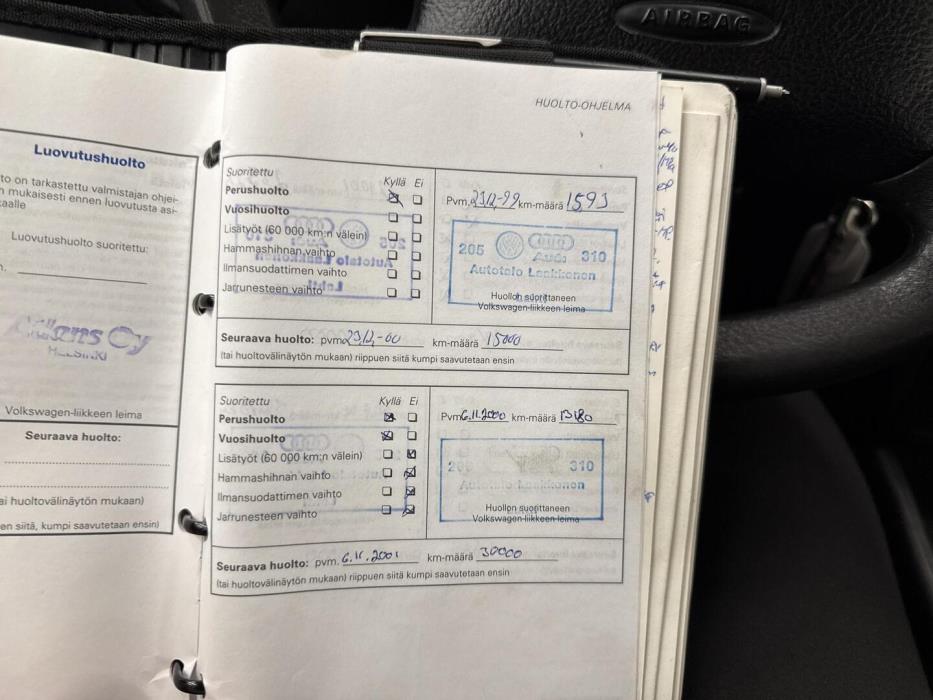 AIRBAG
HUOLTO-OHJELMA
Luovutushuolto
to on tarkastettu valmistajan ohjei-
mukaisesti ennen luovutusta asi-
kaalle
Luovutushuolto suoritettu:
Oy
HELSINKI
Volkswagen-liikkeen leima
Seuraava huolto:
ai huoltovälinäytön mukaan)
en siitä, kumpi saavutetaan ensin)
Suoritettu Kyllä Ei
Perushuolto
Vuosihuolto
Lisätyöt (60 000 km:n välein)
Hammashihnan vaihto
Ilmansuodattimen vaihto
Jarrunesteen vaihto
Pvm. 23.12.-99 km-määrä 1593
205 Audi 310
Autotalo Laakkonen
Lahti
Huollon suorittaneen
Volkswagen-liikkeen leima
Seuraava huolto: pvm. 23.12.-00 km-määrä 15000
(tai huoltovälinäytön mukaan) riippuen siitä kumpi saavutetaan ensin
Suoritettu Kyllä Ei
Perushuolto
Vuosihuolto
Lisätyöt (60 000 km:n välein)
Hammashihnan vaihto
Ilmansuodattimen vaihto
Jarrunesteen vaihto
Pvm. 6.11.2000 km-määrä 13180
310
Autotalo Laakkonen
Huollon suorittaneen
Volkswagen-liikkeen leima
Seuraava huolto: pvm. 6.11.2001 km-määrä 30000
(tai huoltovälinäytön mukaan) riippuen siitä kumpi saavutetaan ensin